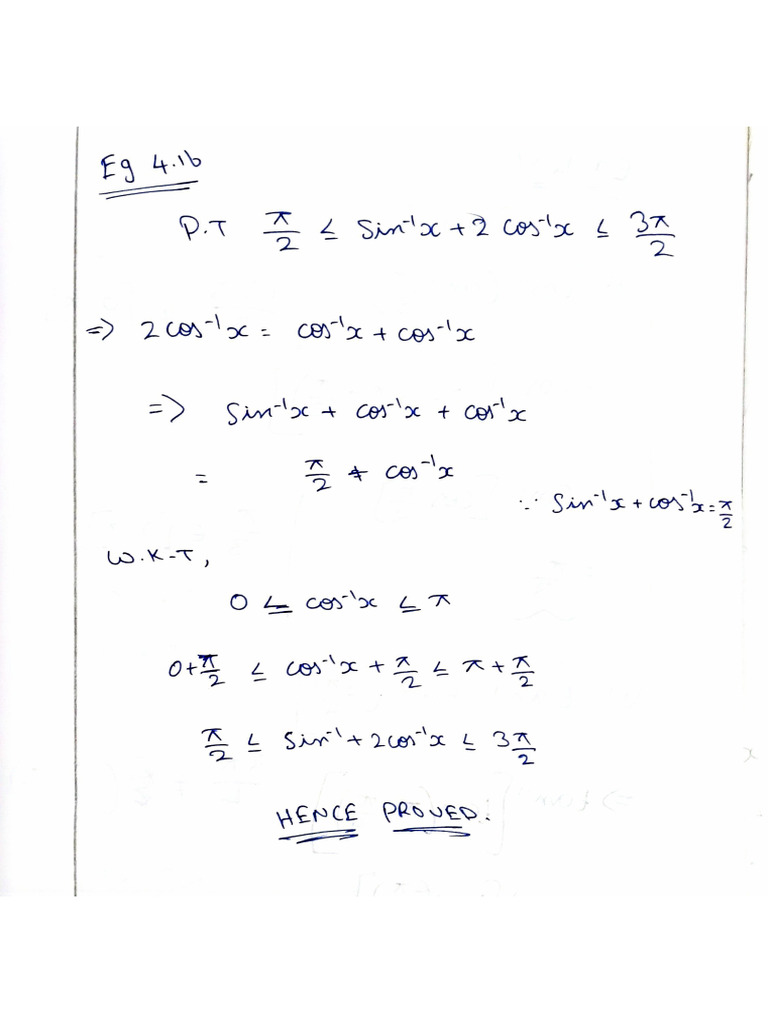 Eg 4.16
P.T π/2 ≤ Sin⁻¹x + 2 cos⁻¹x ≤ 3π/2
=> 2cos⁻¹x = cos⁻¹x + cos⁻¹x
=> Sin⁻¹x + cos⁻¹x + cos⁻¹x
= π/2 + cos⁻¹x
∵ Sin⁻¹x + cos⁻¹x = π/2
W.K-T,
0 ≤ cos⁻¹x ≤ π
0+π/2 ≤ cos⁻¹x + π/2 ≤ π + π/2
π/2 ≤ Sin⁻¹ + 2cos⁻¹x ≤ 3π/2
HENCE PROVED.